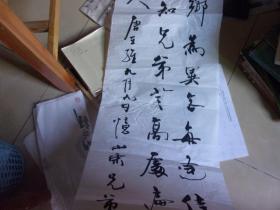 鄉為異客每逢佳
知兄弟登高處遍
人 唐王維九月九日憶山東兄弟